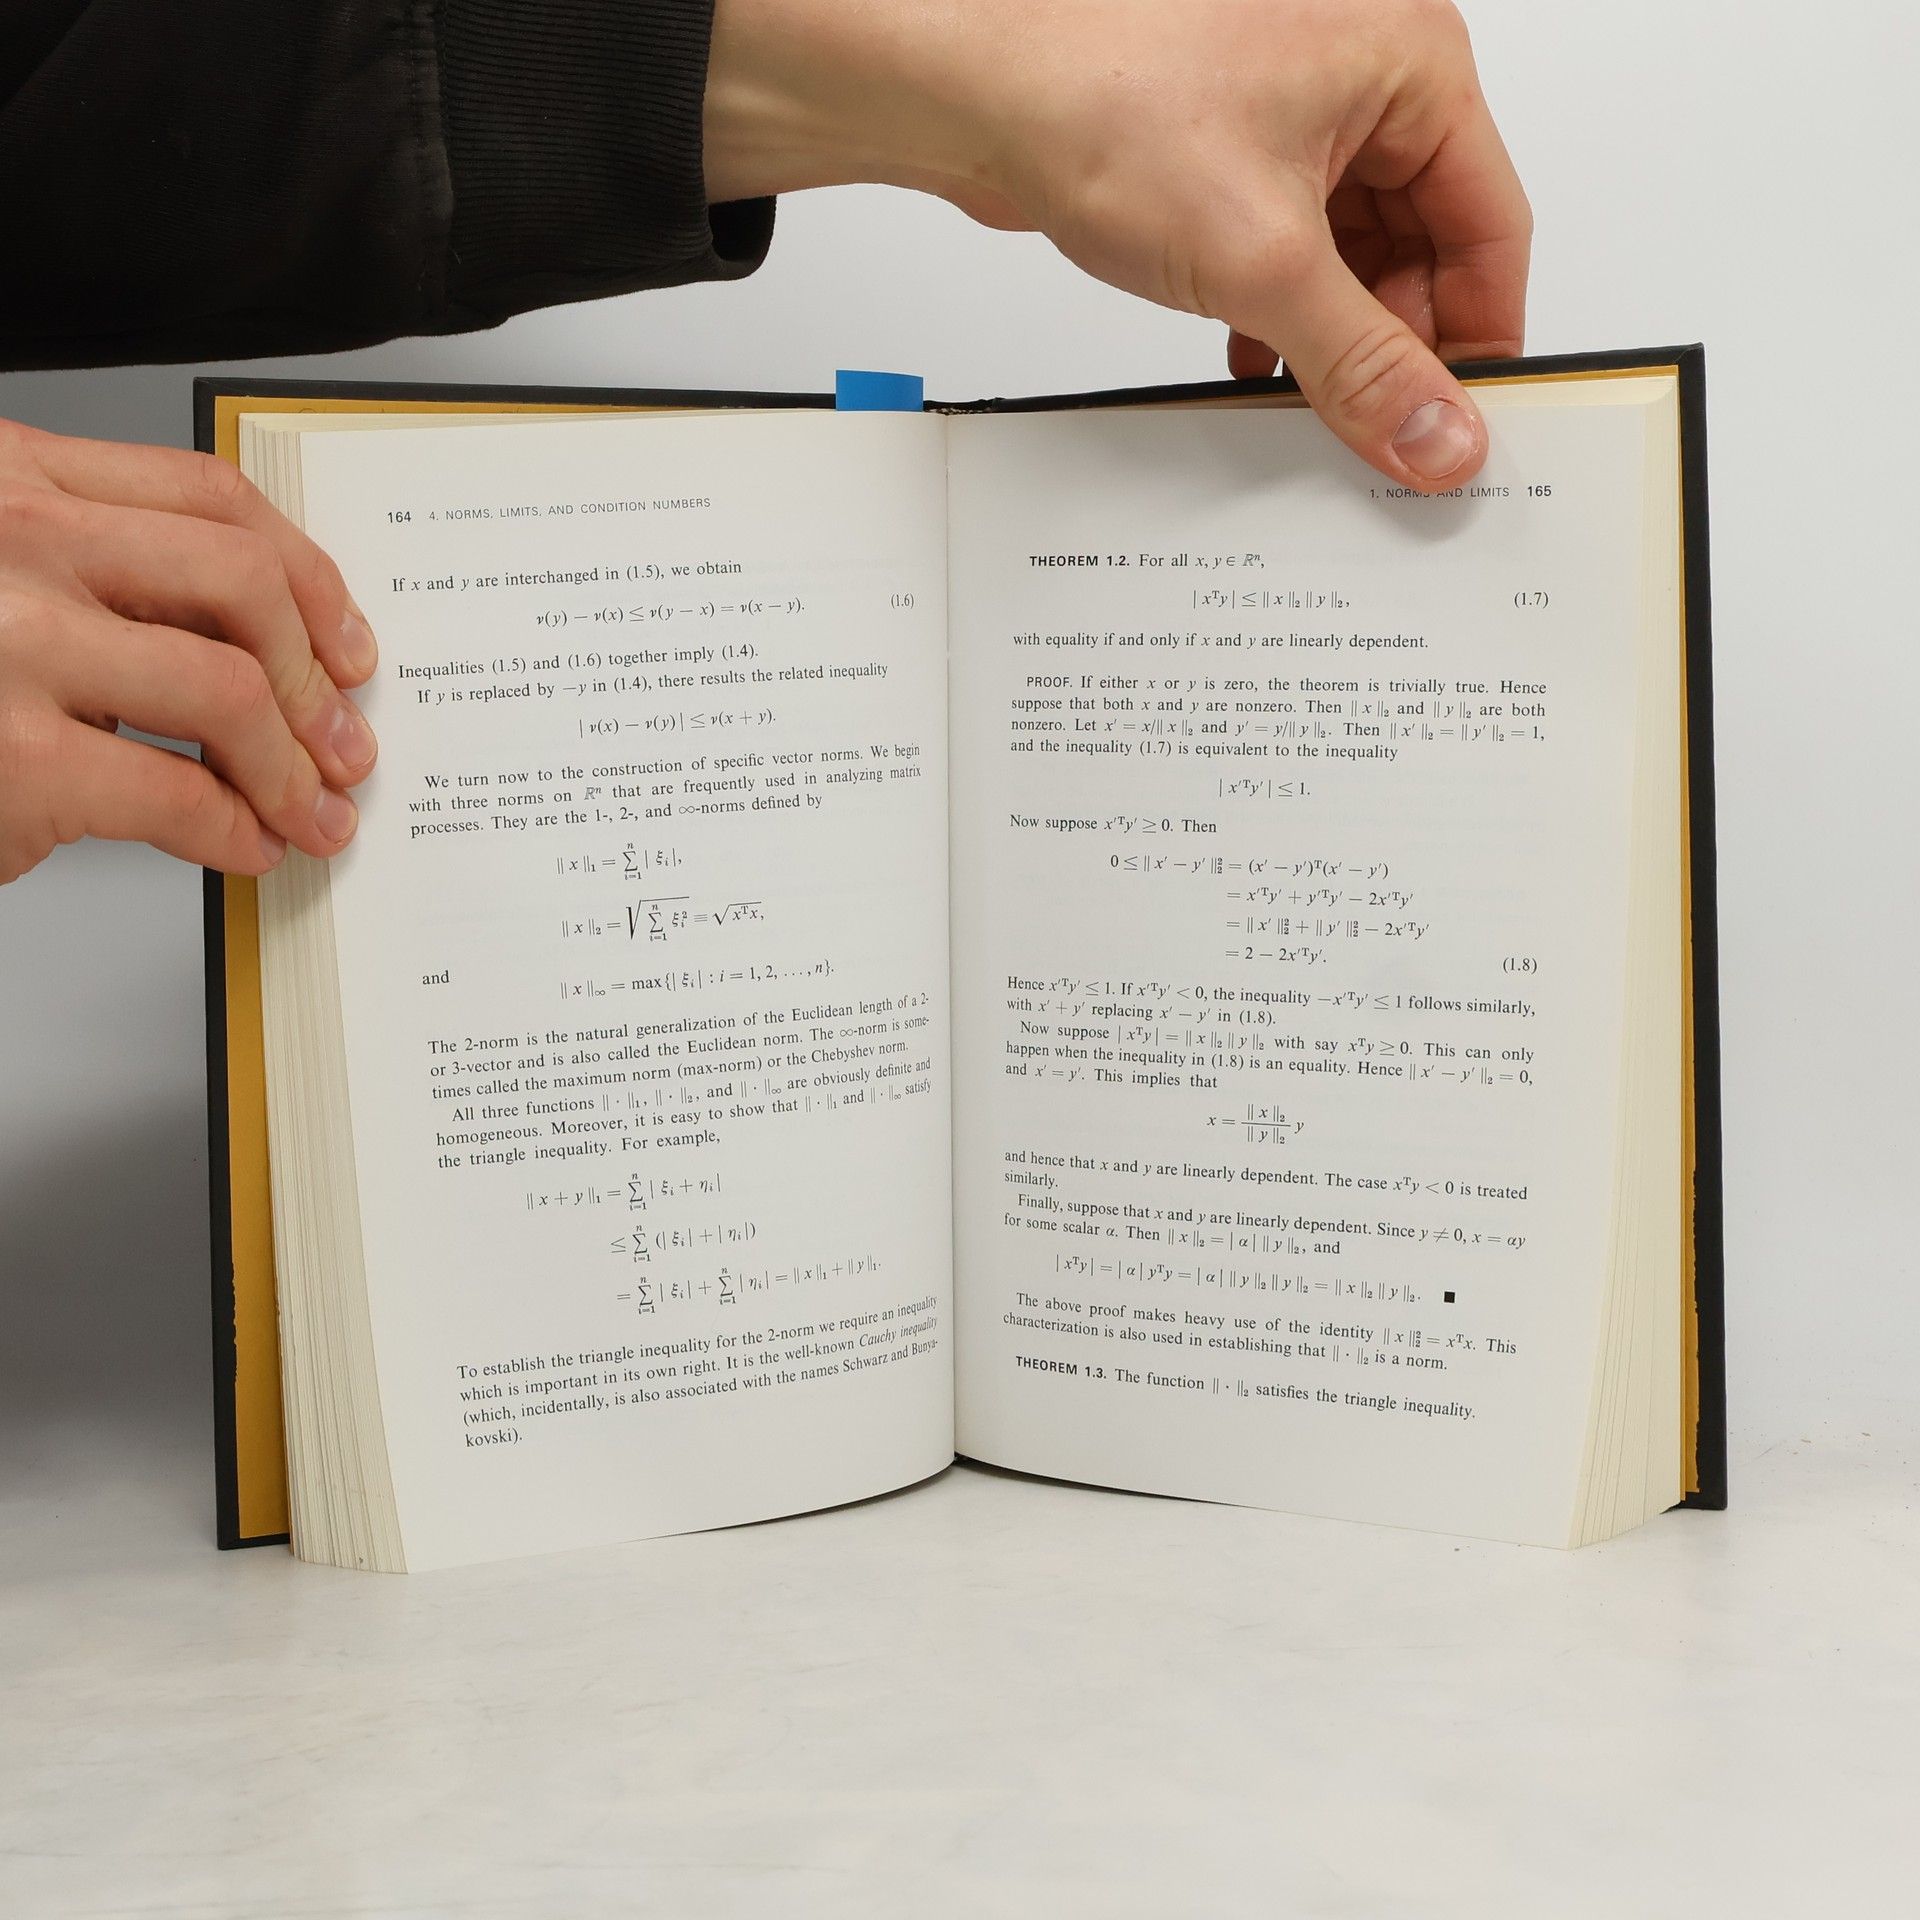 164 4. NORMS, LIMITS, AND CONDITION NUMBERS
If x and y are interchanged in (1.5), we obtain
ν(y) − ν(x) ≤ ν(y − x) = ν(x − y). (1.6)
Inequalities (1.5) and (1.6) together imply (1.4).
If y is replaced by −y in (1.4), there results the related inequality
| ν(x) − ν(y) | ≤ ν(x + y).
We turn now to the construction of specific vector norms. We begin
with three norms on ℝⁿ that are frequently used in analyzing matrix
processes. They are the 1-, 2-, and ∞-norms defined by
‖ x ‖₁ = ∑ᵢ₌₁ⁿ | ξᵢ |,
‖ x ‖₂ = √(∑ᵢ₌₁ⁿ ξᵢ²) ≡ √(xᵀx),
and
‖ x ‖∞ = max{| ξᵢ | : i = 1, 2, . . . , n}.
The 2-norm is the natural generalization of the Euclidean length of a 2-
or 3-vector and is also called the Euclidean norm. The ∞-norm is some-
times called the maximum norm (max-norm) or the Chebyshev norm.
All three functions ‖ · ‖₁, ‖ · ‖₂, and ‖ · ‖∞ are obviously definite and
homogeneous. Moreover, it is easy to show that ‖ · ‖₁ and ‖ · ‖∞ satisfy
the triangle inequality. For example,
‖ x + y ‖₁ = ∑ᵢ₌₁ⁿ | ξᵢ + ηᵢ |
≤ ∑ᵢ₌₁ⁿ (| ξᵢ | + | ηᵢ |)
= ∑ᵢ₌₁ⁿ | ξᵢ | + ∑ᵢ₌₁ⁿ | ηᵢ | = ‖ x ‖₁ + ‖ y ‖₁.
To establish the triangle inequality for the 2-norm we require an inequality
which is important in its own right. It is the well-known Cauchy inequality
(which, incidentally, is also associated with the names Schwarz and Bunya-
kovski).
1. NORMS AND LIMITS 165
THEOREM 1.2. For all x, y ∈ ℝⁿ,
| xᵀy | ≤ ‖ x ‖₂ ‖ y ‖₂, (1.7)
with equality if and only if x and y are linearly dependent.
PROOF. If either x or y is zero, the theorem is trivially true. Hence
suppose that both x and y are nonzero. Then ‖ x ‖₂ and ‖ y ‖₂ are both
nonzero. Let x′ = x/‖ x ‖₂ and y′ = y/‖ y ‖₂. Then ‖ x′ ‖₂ = ‖ y′ ‖₂ = 1,
and the inequality (1.7) is equivalent to the inequality
| x′ᵀy′ | ≤ 1.
Now suppose x′ᵀy′ ≥ 0. Then
0 ≤ ‖ x′ − y′ ‖₂² = (x′ − y′)ᵀ(x′ − y′)
= x′ᵀy′ + y′ᵀy′ − 2x′ᵀy′
= ‖ x′ ‖₂² + ‖ y′ ‖₂² − 2x′ᵀy′
= 2 − 2x′ᵀy′. (1.8)
Hence x′ᵀy′ ≤ 1. If x′ᵀy′ < 0, the inequality −x′ᵀy′ ≤ 1 follows similarly,
with x′ + y′ replacing x′ − y′ in (1.8).
Now suppose | xᵀy | = ‖ x ‖₂ ‖ y ‖₂ with say xᵀy ≥ 0. This can only
happen when the inequality in (1.8) is an equality. Hence ‖ x′ − y′ ‖₂ = 0,
and x′ = y′. This implies that
x = ‖ x ‖₂ / ‖ y ‖₂ y
and hence that x and y are linearly dependent. The case xᵀy < 0 is treated
similarly.
Finally, suppose that x and y are linearly dependent. Since y ≠ 0, x = αy
for some scalar α. Then ‖ x ‖₂ = | α | ‖ y ‖₂, and
| xᵀy | = | α | yᵀy = | α | ‖ y ‖₂ ‖ y ‖₂ = ‖ x ‖₂ ‖ y ‖₂. ■
The above proof makes heavy use of the identity ‖ x ‖₂² = xᵀx. This
characterization is also used in establishing that ‖ · ‖₂ is a norm.
THEOREM 1.3. The function ‖ · ‖₂ satisfies the triangle inequality.